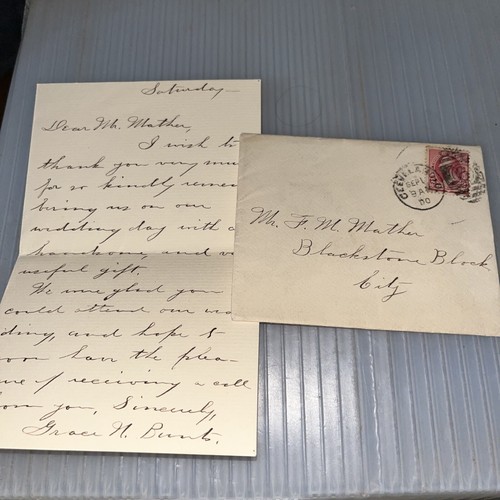 Saturday—
Dear Mr. Mather,
I wish to
thank you very mu
for so kindly remem
bering us on our
wedding day with a
handsome, and v
useful gift.
We were glad you
could attend our we
ding, and hope
soon have the plea-
ure of receiving a call
from you, Sincerely,
Grace N.
SEP
9 AM
00
Mr. F. M. Mather
Blackstone Block
City